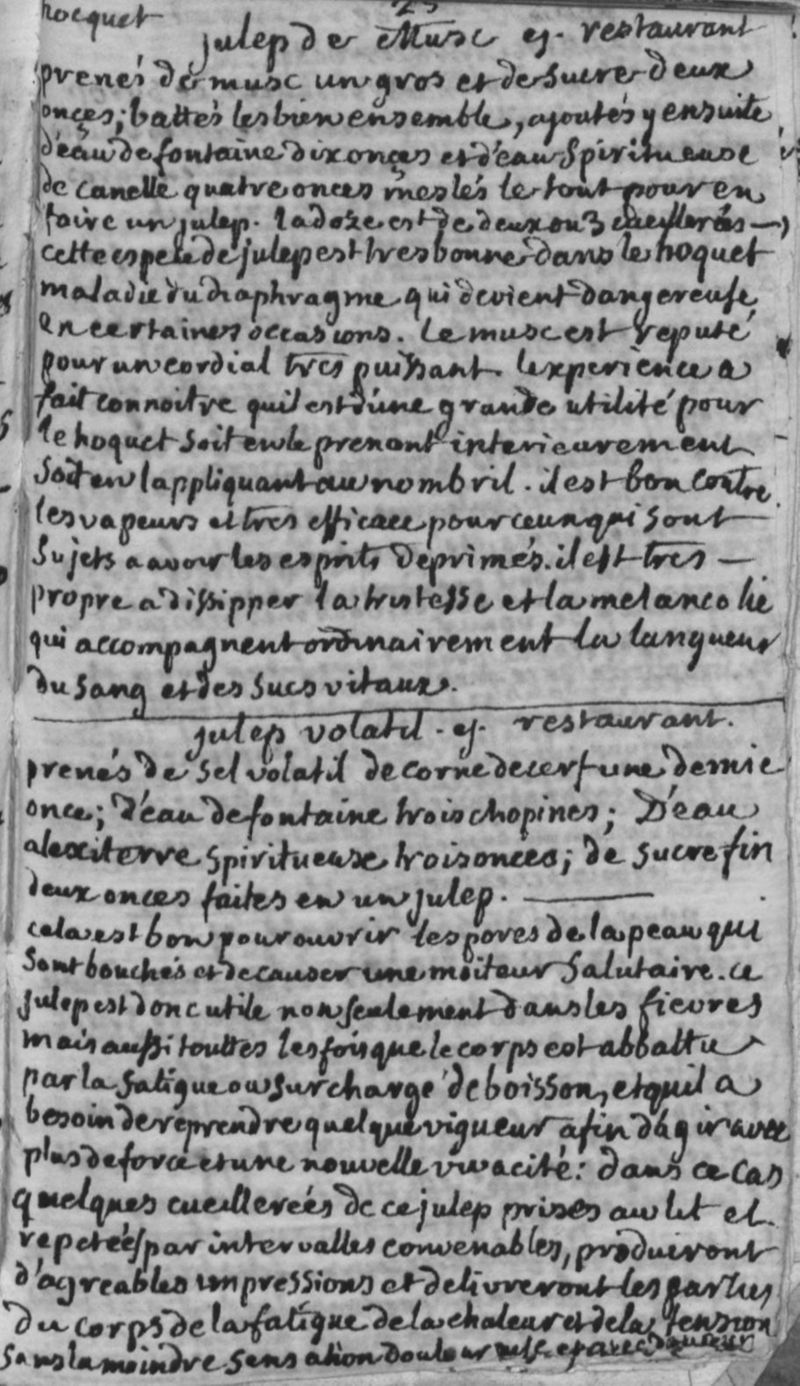 hocquet
23
julep de Musc ej. restaurant
prenés de musc un gros et de sucre deux
onçes; battés les bien ensemble, ajoutés y ensuite
d'éau de fontaine dix onçes et d'éau spiritueuse
de canelle quatre onces meslés le tout pour en
faire un julep. la doze est de deux ou 3 cueillerés —
cette espece de julep est tres bonne dans le hoquet
maladie du diaphragme qui devient dangereuse
en certaines occasions. le musc est reputé
pour un cordial tres puissant. lexperience a
fait connoitre quil est d'une grande utilité pour
le hoquet soit en le prenant interieurement
soit en lappliquant au nombril. il est bon contre
les vapeurs et tres efficace pour ceux qui sont
sujets a avoir les esprits deprimés. il est tres —
propre a dissipper la tristesse et la melancolie
qui accompagnent ordinairement la langueur
du sang et des sucs vitaux.
julep volatil. ej. restaurant.
prenés de sel volatil de corne de cerf une demie
once; d'éau de fontaine trois chopines; D'eau
alexiterre spiritueuse trois onces; de sucre fin
deux onces faites en un julep. —
cela est bon pour ouvrir les pores de la peau qui
sont bouchés et de causer une moiteur salutaire. ce
julep est donc utile non seulement dans les fievres
mais aussi touttes les fois que le corps est abbattu
par la fatigue ou surchargé de boisson, et quil a
besoin de reprendre quelque vigueur afin dagir avec
plus de force et une nouvelle vivacité: dans ce cas
quelques cueillereés de ce julep prises au lit et
repeteés par intervalles convenables, produiront
d'agreables impressions et delivreront les parties
du corps de la fatigue de la chaleur et de la tension
sans la moindre sensation douloureuse et avec douceur